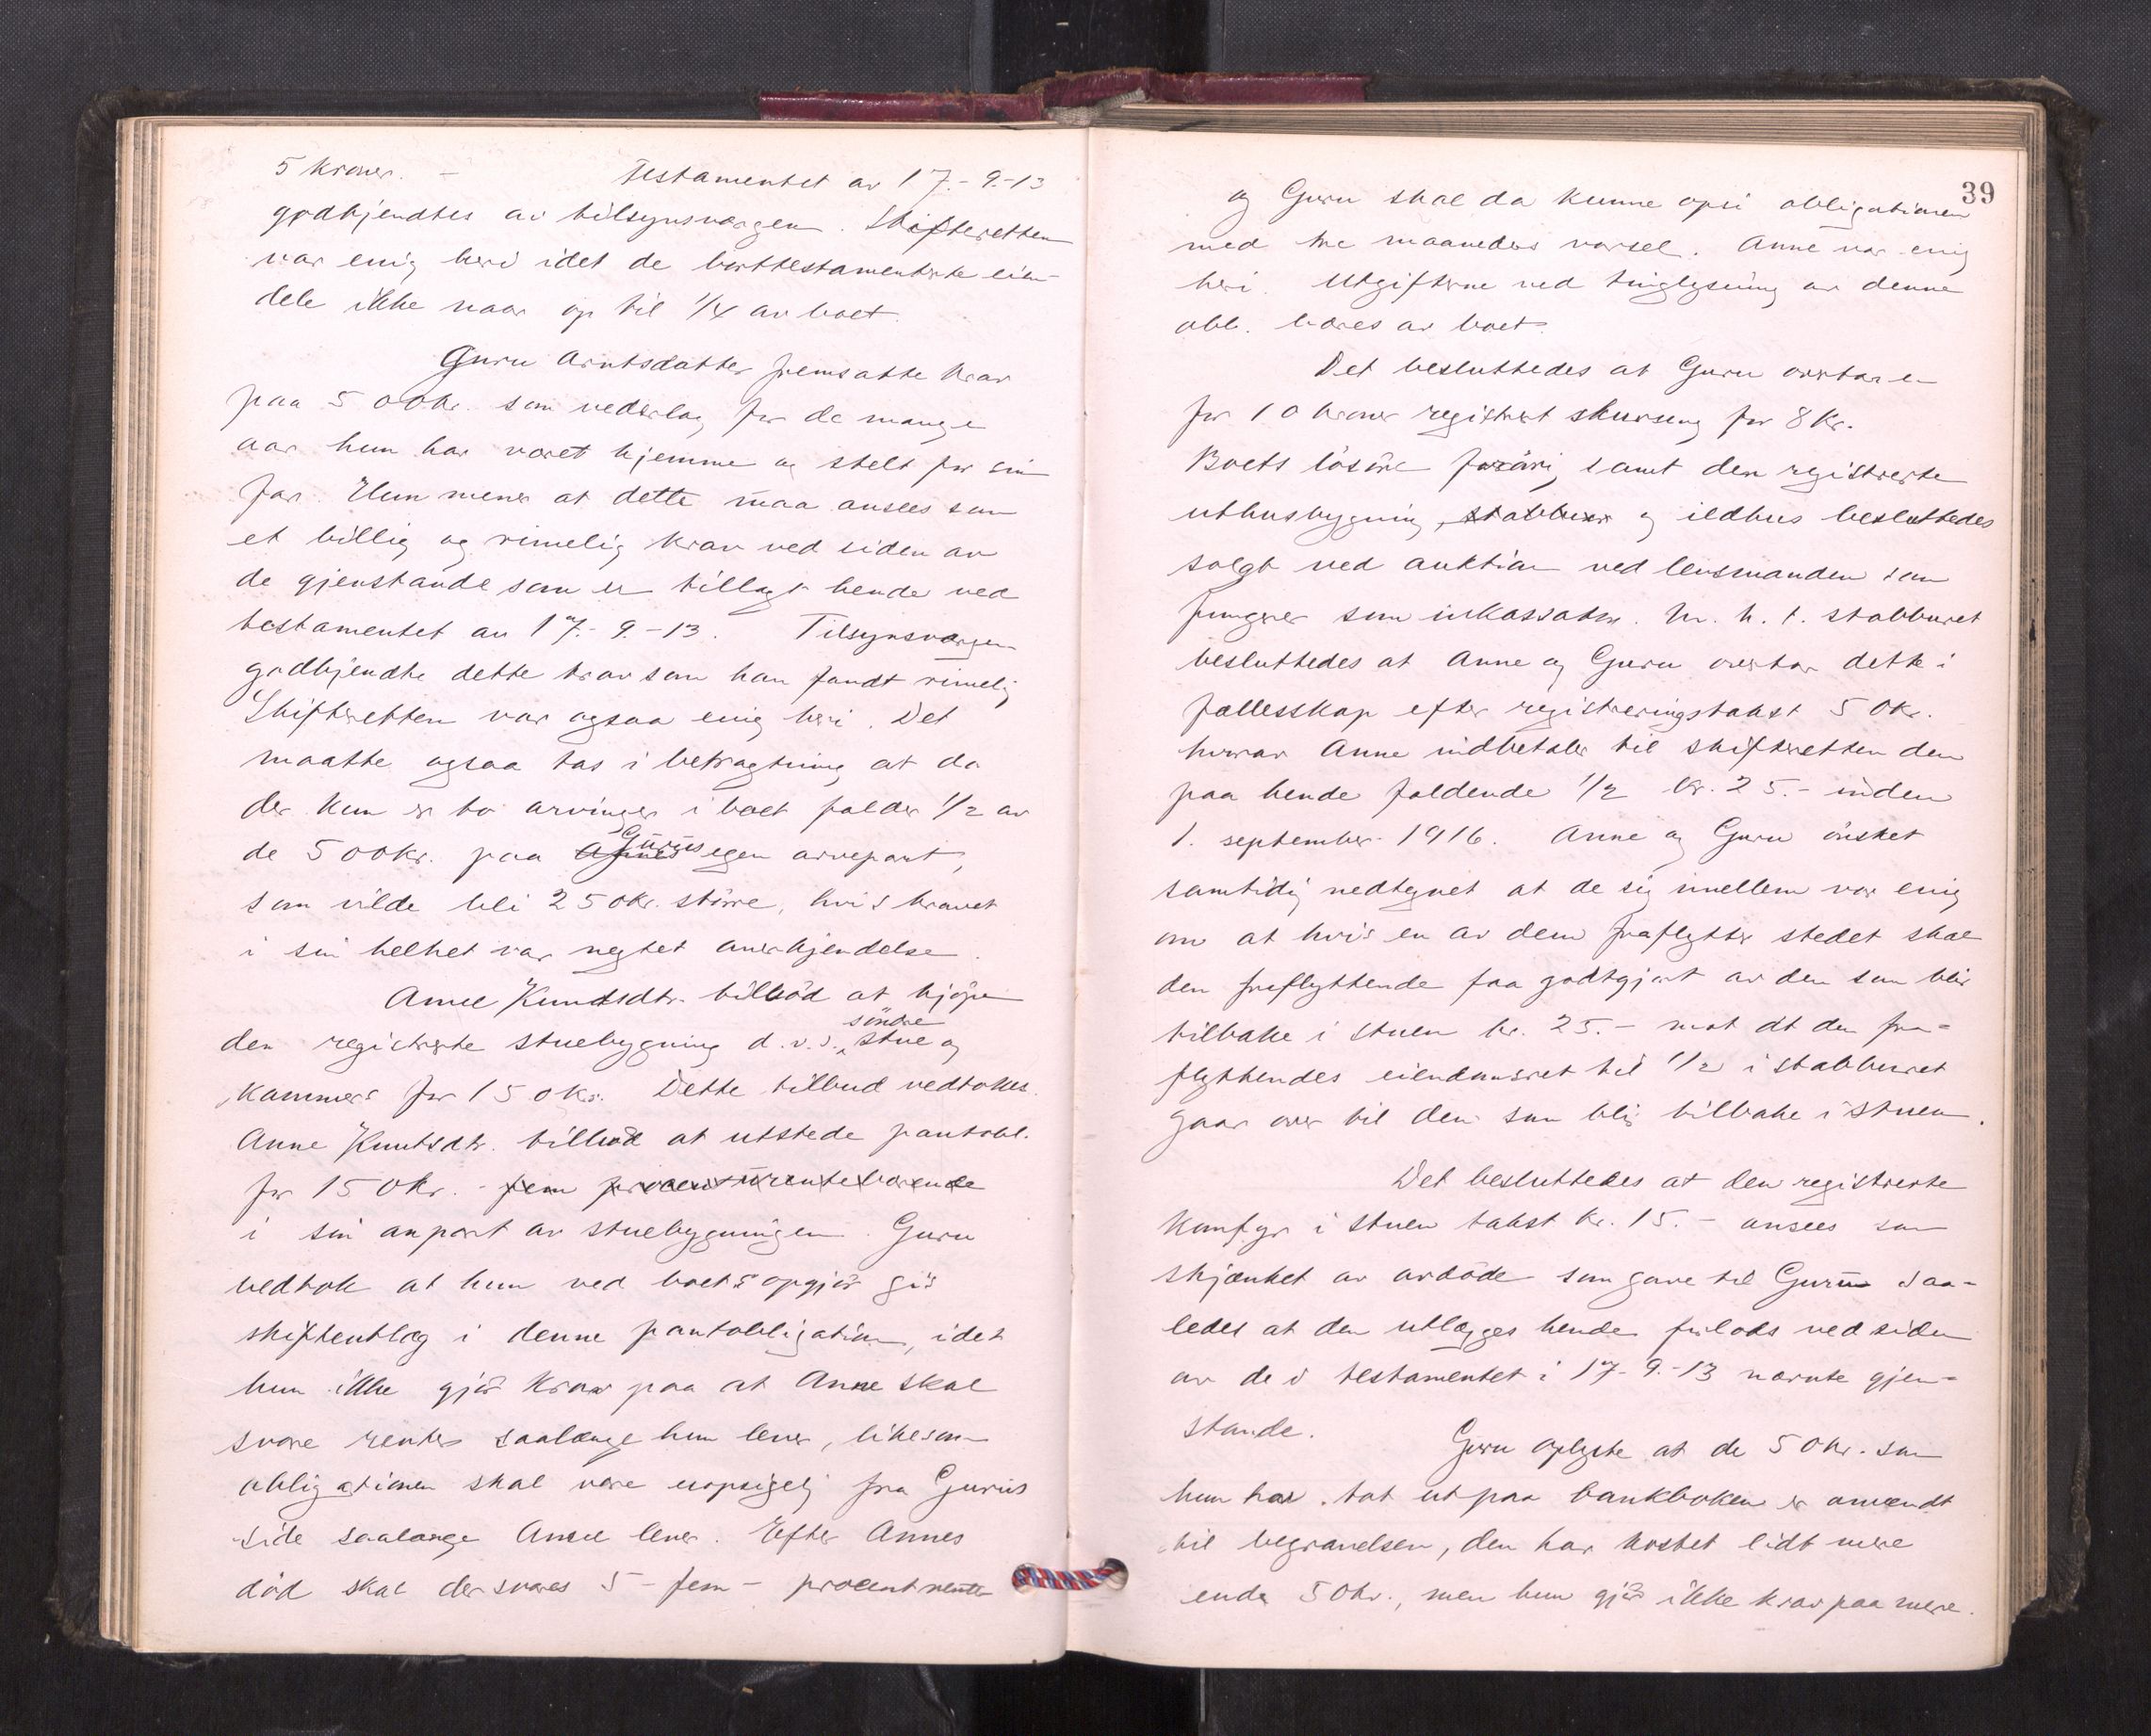 5 kroner. – Testamentet av 17.-9.-13
godkjendtes av tilsynsværgen. Skifteretten
var enig heri idet de borttestamenterte eien-
dele ikke naar op til 1/4 av boet.
Guru Arntsdatter fremsatte krav
paa 500 kr. som vederlag for de mange
aar hun har været hjemme og stelt for sin
far. Hun mener at dette maa ansees som
et billig og rimelig krav ved siden av
de gjenstande som er tillagt hende ved
testamentet av 17.-9.-13. Tilsynsværgen
godkjendte dette krav som han fandt rimelig
Skifteretten var ogsaa enig heri. Det
maatte ogsaa tas i betragtning at da
der kun er to arvinger i boet falder 1/2 av
de 500 kr. paa Gurus egen arvepart,
som vilde bli 250 kr. större, hvis kravet
i sin helhet var negtet anerkjendelse.
Anne Knutsdtr. tilböd at kjöpe
den registrerte stuebygning d.v.s. söndre stue og
kammers for 150 kr. Dette tilbud vedtokes.
Anne Knutsdtr. tilböd at utstede pantobl.
for 150 kr. - fem procent rentebærende
i sin anpart av stuebygningen. Guru
vedtok at hun ved boets opgjör gis
skifteutlæg i denne pantobligation, idet
hun ikke gjör krav paa at Anne skal
svare renter saalænge hun lever, likesom
obligationen skal være uopsigelig fra Gurus
side saalænge Anne lever. Efter Annes
död skal der svares 5 - fem - procent rente
39
og Guru skal da kunne opsi obligationen
med tre maaneders varsel. Anne var enig
heri. Utgifterne ved tinglysning av denne
obl. bæres av boet.
Det besluttedes at Guru overtar en
for 10 kroner registrert skurseng for 8 kr.
Boets lösöre forövrig samt den registrerte
uthusbygning, stabbur og ildhus besluttedes
solgt ved auktion ved lensmanden som
fungerer som inkassator. M. h. t. stabburet
besluttedes at Anne og Guru overtar dette i
fællesskap efter registreringstakst 50 kr.
hvorav Anne indbetaler til skifteretten den
paa hende faldende 1/2 kr. 25.- inden
1. september 1916. Anne og Guru önsket
samtidig nedtegnet at de sig imellem var enig
om at hvis en av dem fraflytter stedet skal
den fraflyttende faa godtgjort av den som blir
tilbake i stuen kr. 25.- mot at den fra-
flyttendes eiendomsret til 1/2 i stabburet
gaar over til den som blir tilbake i stuen.
Det besluttedes at den registrerte
komfyr i stuen takst kr. 15.- ansees som
skjænket av avdöde som gave til Guru saa-
ledes at den utlægges hende forlods ved siden
av de i testamentet i 17-9.-13 nævnte gjen-
stande. Guru oplyste at de 50 kr. som
hun har tat ut paa bankboken er anvendt
til begravelsen, den har kostet lidt mere
enda 50 kr., men hun gjör ikke krav paa mere.